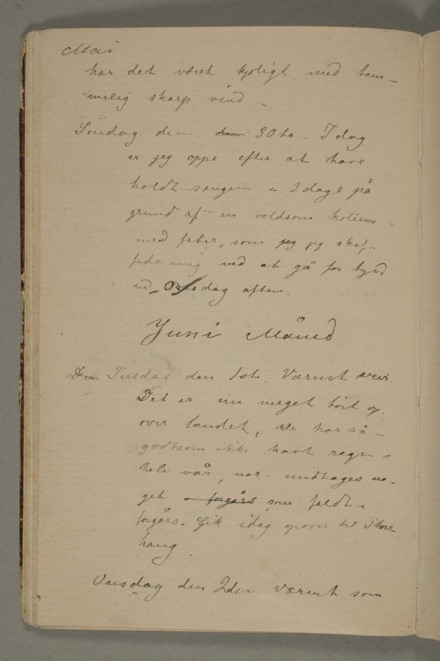 Mai
har det været kjøligt med tem-
melig skarp vind -
Söndag den 30te. Idag
er jeg oppe efter at have
holdt sengen i 3 dage på
grund af en voldsom
med feber, som jeg jeg skaf-
fede mig ved at gå for tynd
ud Onsdag aften.
Juni Måned
Den Tirsdag den 1ste. Varmt veir
Det er nu meget tört op
over landet, vi har så-
godtsom ikke havt regn i
hele vår, naar undtages no-
get forgårs som faldt i
forgårs. Gik idag opover til
hang
Onsdag den 2den Varmt som